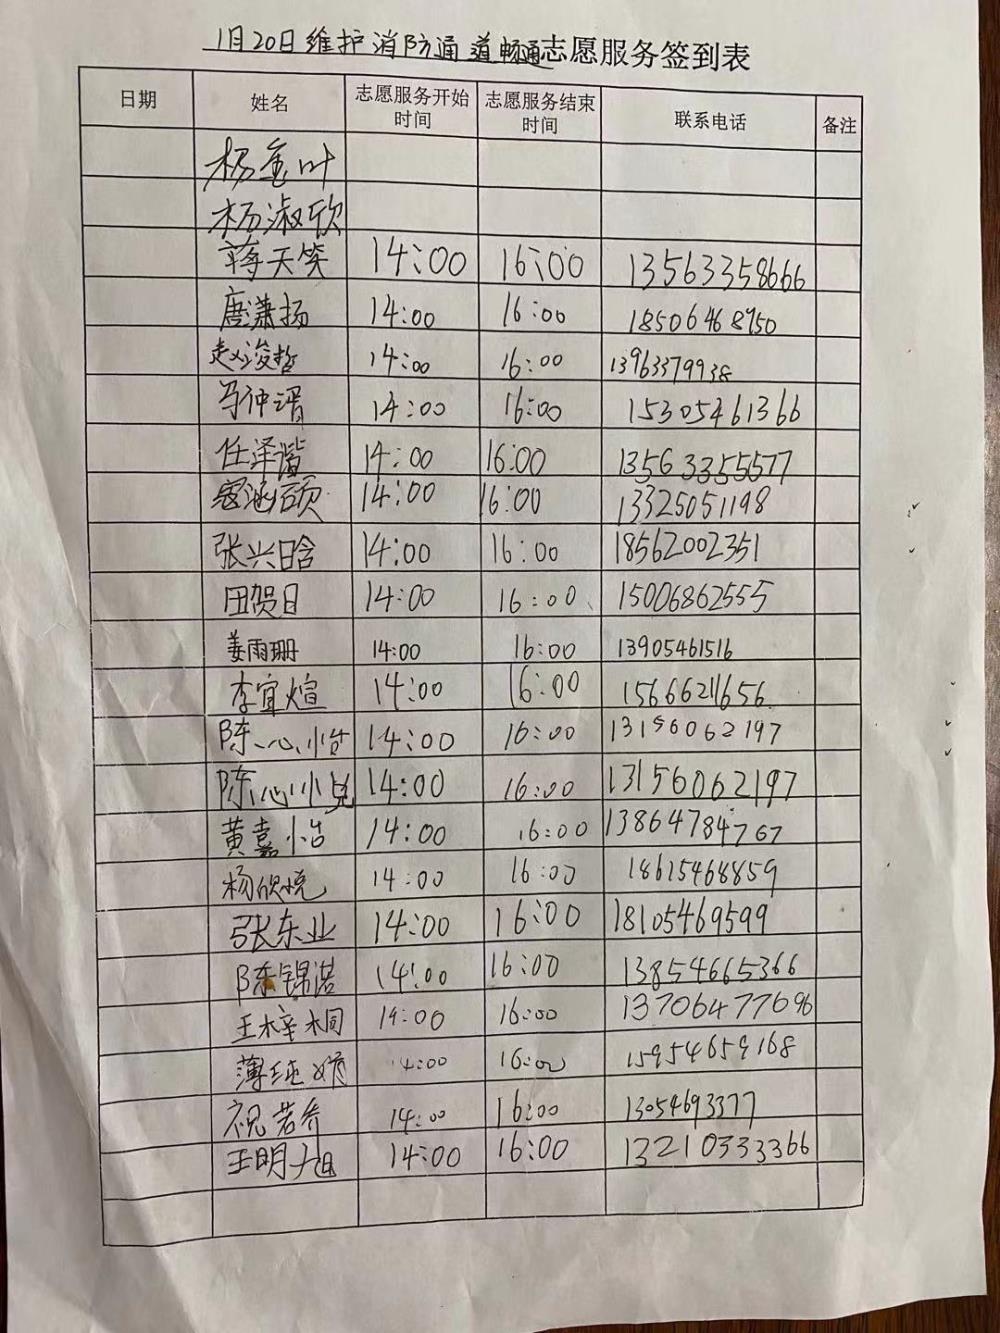 1月20日维护消防通道畅通志愿服务签到表
日期 姓名 志愿服务开始时间 志愿服务结束时间 联系电话 备注
杨金叶
杨淑欣
蒋天笑 14:00 16:00 13563358666
唐潇扬 14:00 16:00 18506468950
赵浚哲 14:00 16:00 13963379938
马仲谞 14:00 16:00 15305461366
任泽谐 14:00 16:00 13563355577
涵硕 14:00 16:00 13325051198
张兴晗 14:00 16:00 18562002351
田贺日 14:00 16:00 15006862555
姜雨珊 14:00 16:00 13905461516
李宜煊 14:00 16:00 15666211656
陈心怡 14:00 16:00 13156062197
陈心悦 14:00 16:00 13156062197
黄嘉怡 14:00 16:00 13864784767
杨欣悦 14:00 16:00 18615468859
张东业 14:00 16:00 18105469599
陈锦诺 14:00 16:00 13854665366
王梓桐 14:00 16:00 13706477696
薄纯婧 14:00 16:00 15954659168
祝若乔 14:00 16:00 13054693377
王明旭 14:00 16:00 13210333366